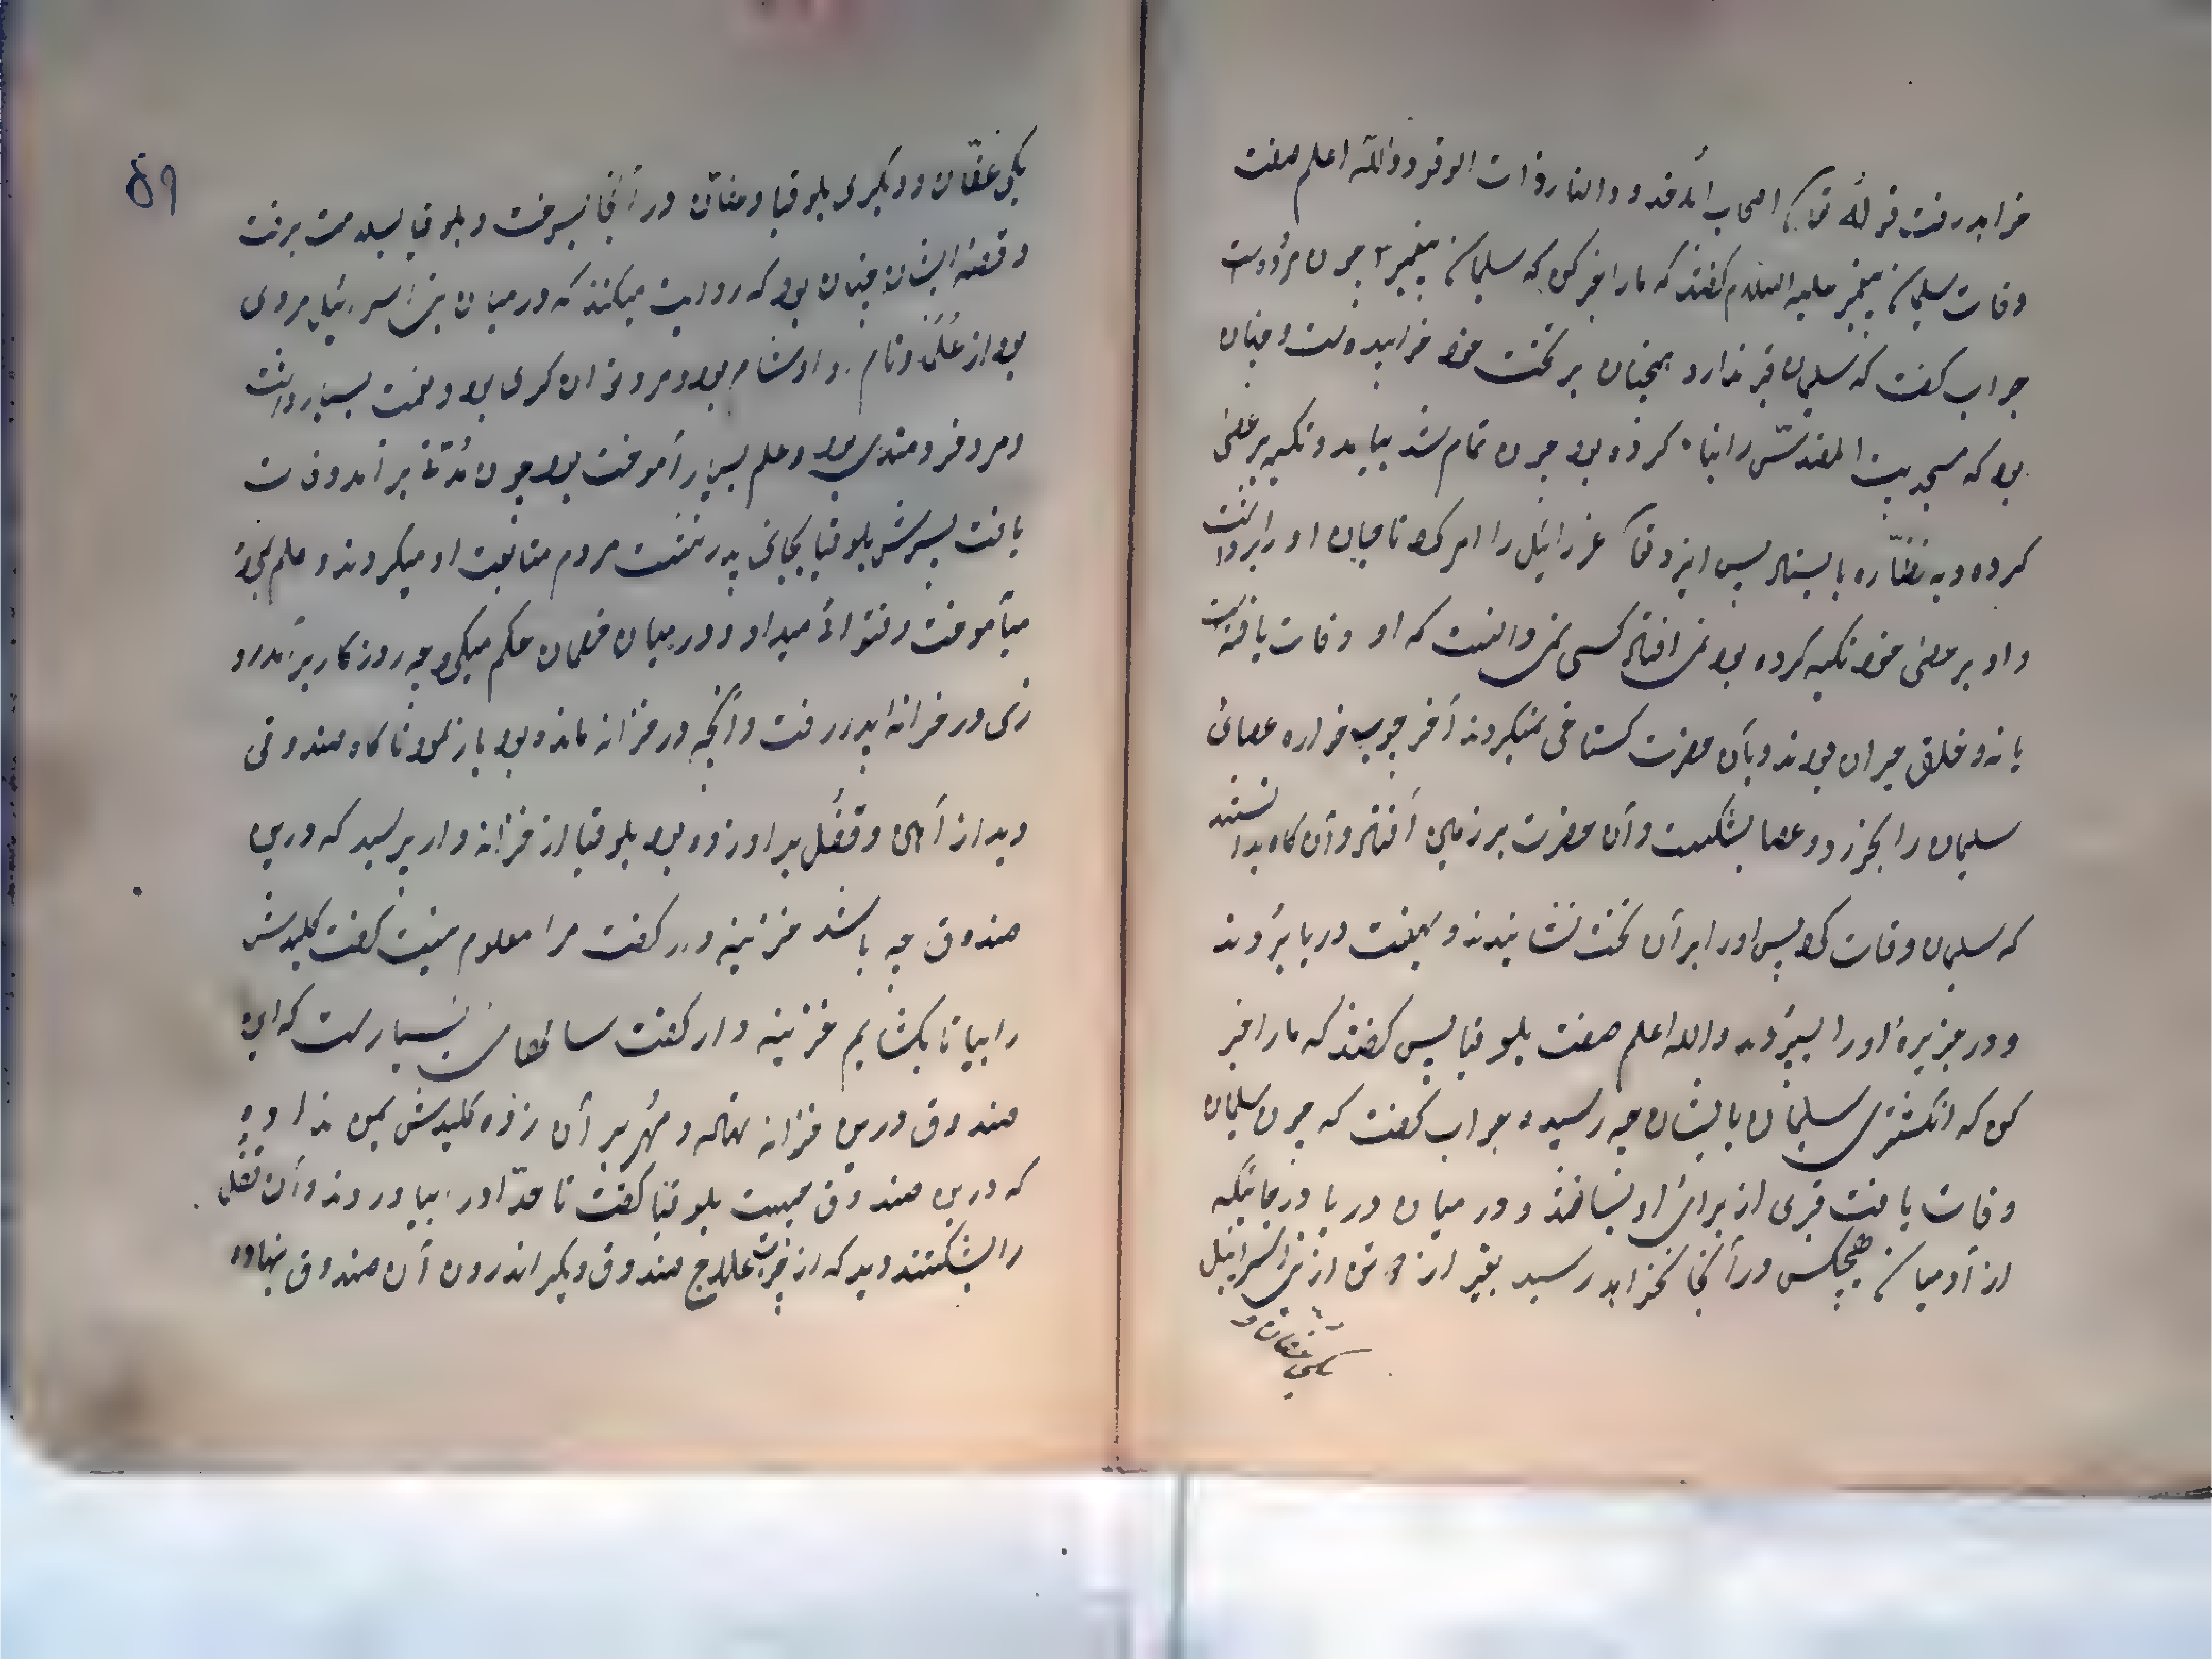 خواهد رفت قوله تعالی اصحاب الاخدود النار ذات الوقود والله اعلم صفت
وفات سلیمان پیغمبر علیه السلام گفتند که ما را خبر کن که سلیمان پیغمبر چون مرده است
جواب گفت که سلیمان قبر ندارد همچنان بر تخت خود خوابیده است و چنان
بود که مسجد بیت المقدس را بنا کرده بود چون تمام شد بیامد و تکیه بر عصی
کرده و به نظاره بایستاد پس ایزد تعا عزرائیل را امر کرد تا جان او را برداشت
و او بر عصی خود تکیه کرده بود نمی افتاد کسی نمی دانست که او وفات یافته است
یا نه و خلق حیران بودند و بآن حضرت گستاخی نمیکردند آخر چوب خواره عصائ
سلیمان را بخورد و عصا بشکست و آن حضرت بر زمین افتاد و آن گاه بدانستند
که سلیمان وفات کرد پس او را بر آن تخت نشانیدند و بهفت دریا بردند
و در جزیره او را بسپردند والله اعلم صفت بلوقیا پس گفتند که ما را خبر
کن که انگشتری سلیمان بایشان چه رسیده جواب گفت که چون سلیمان
وفات یافت قبری از برای او بساختند و در میان دریا در جائیکه
از آدمیان هیچکس در آنجا نخواهد رسید بغیر از دو تن از بنی اسرائیل
یکی عفّان و
۵۹
یکی عفّان و دیگری بلوقیا و عفّان در آنجا بسوخت و بلوقیا بسلامت برفت
و قصّه ایشان چنان بود که روایت میکنند که در میان بنی اسرائیل مردی
بود از علما و نام او اوشا بود و مرد توان گری بود و نعمت بسیار داشت
و مرد خردمندی بود و علم بسیار آموخت بود چون مدّتی برآمد وفات
یافت پسرش بلوقیا بجای پدر بنشست مردم متابعت او میکردند و علم
میآموخت و فتوائ میداد و در میان خصمان حکم میکرد چه روزگار برآمد رو
زی در خزانه پدر رفت و آنچه در خزانه مانده بود باز نمود ناگاه صندوقی
دید از آهن و قفل بر او زده بود بلوقیا از خزانه دار پرسید که درین
صندوق چه باشد خزینه دار گفت مرا معلوم نیست گفت کلیدش
را بیار تا بکشایم خزینه دار گفت سالهای بسیار است که این
صندوق درین خزانه نهاده و مُهر بر آن زده کلیدش بمن نداده
که درین صندوق چیست بلوقیا گفت تا حدّاد را بیاوردند و آن قفل
را بشکستند دید که از چوب عاج صندوق دیگر اندرون آن صندوق نهاده